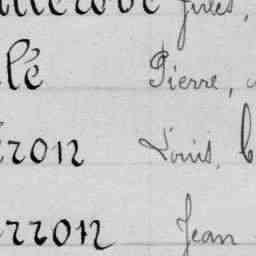 Jules,
lé Pierre,
rron Louis,
rron Jean